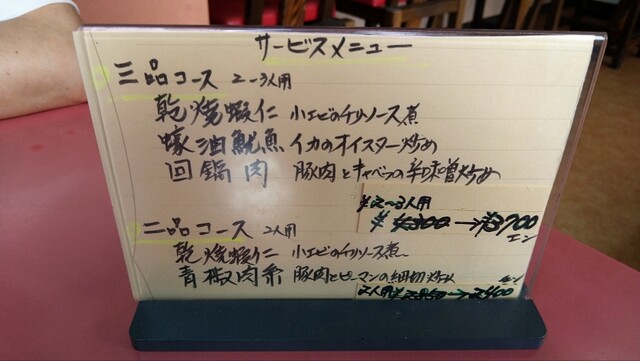 サービスメニュー
三品コース 2〜3人用
乾焼蝦仁 小エビのチリソース煮
蠔油魷魚 イカのオイスター炒め
回鍋肉 豚肉とキャベツの辛味噌炒め
2〜3人用
¥4300→¥3700
エン
二品コース 2人用
乾焼蝦仁 小エビのチリソース煮
青椒肉糸 豚肉とピーマンの細切炒め
2人用 →2400